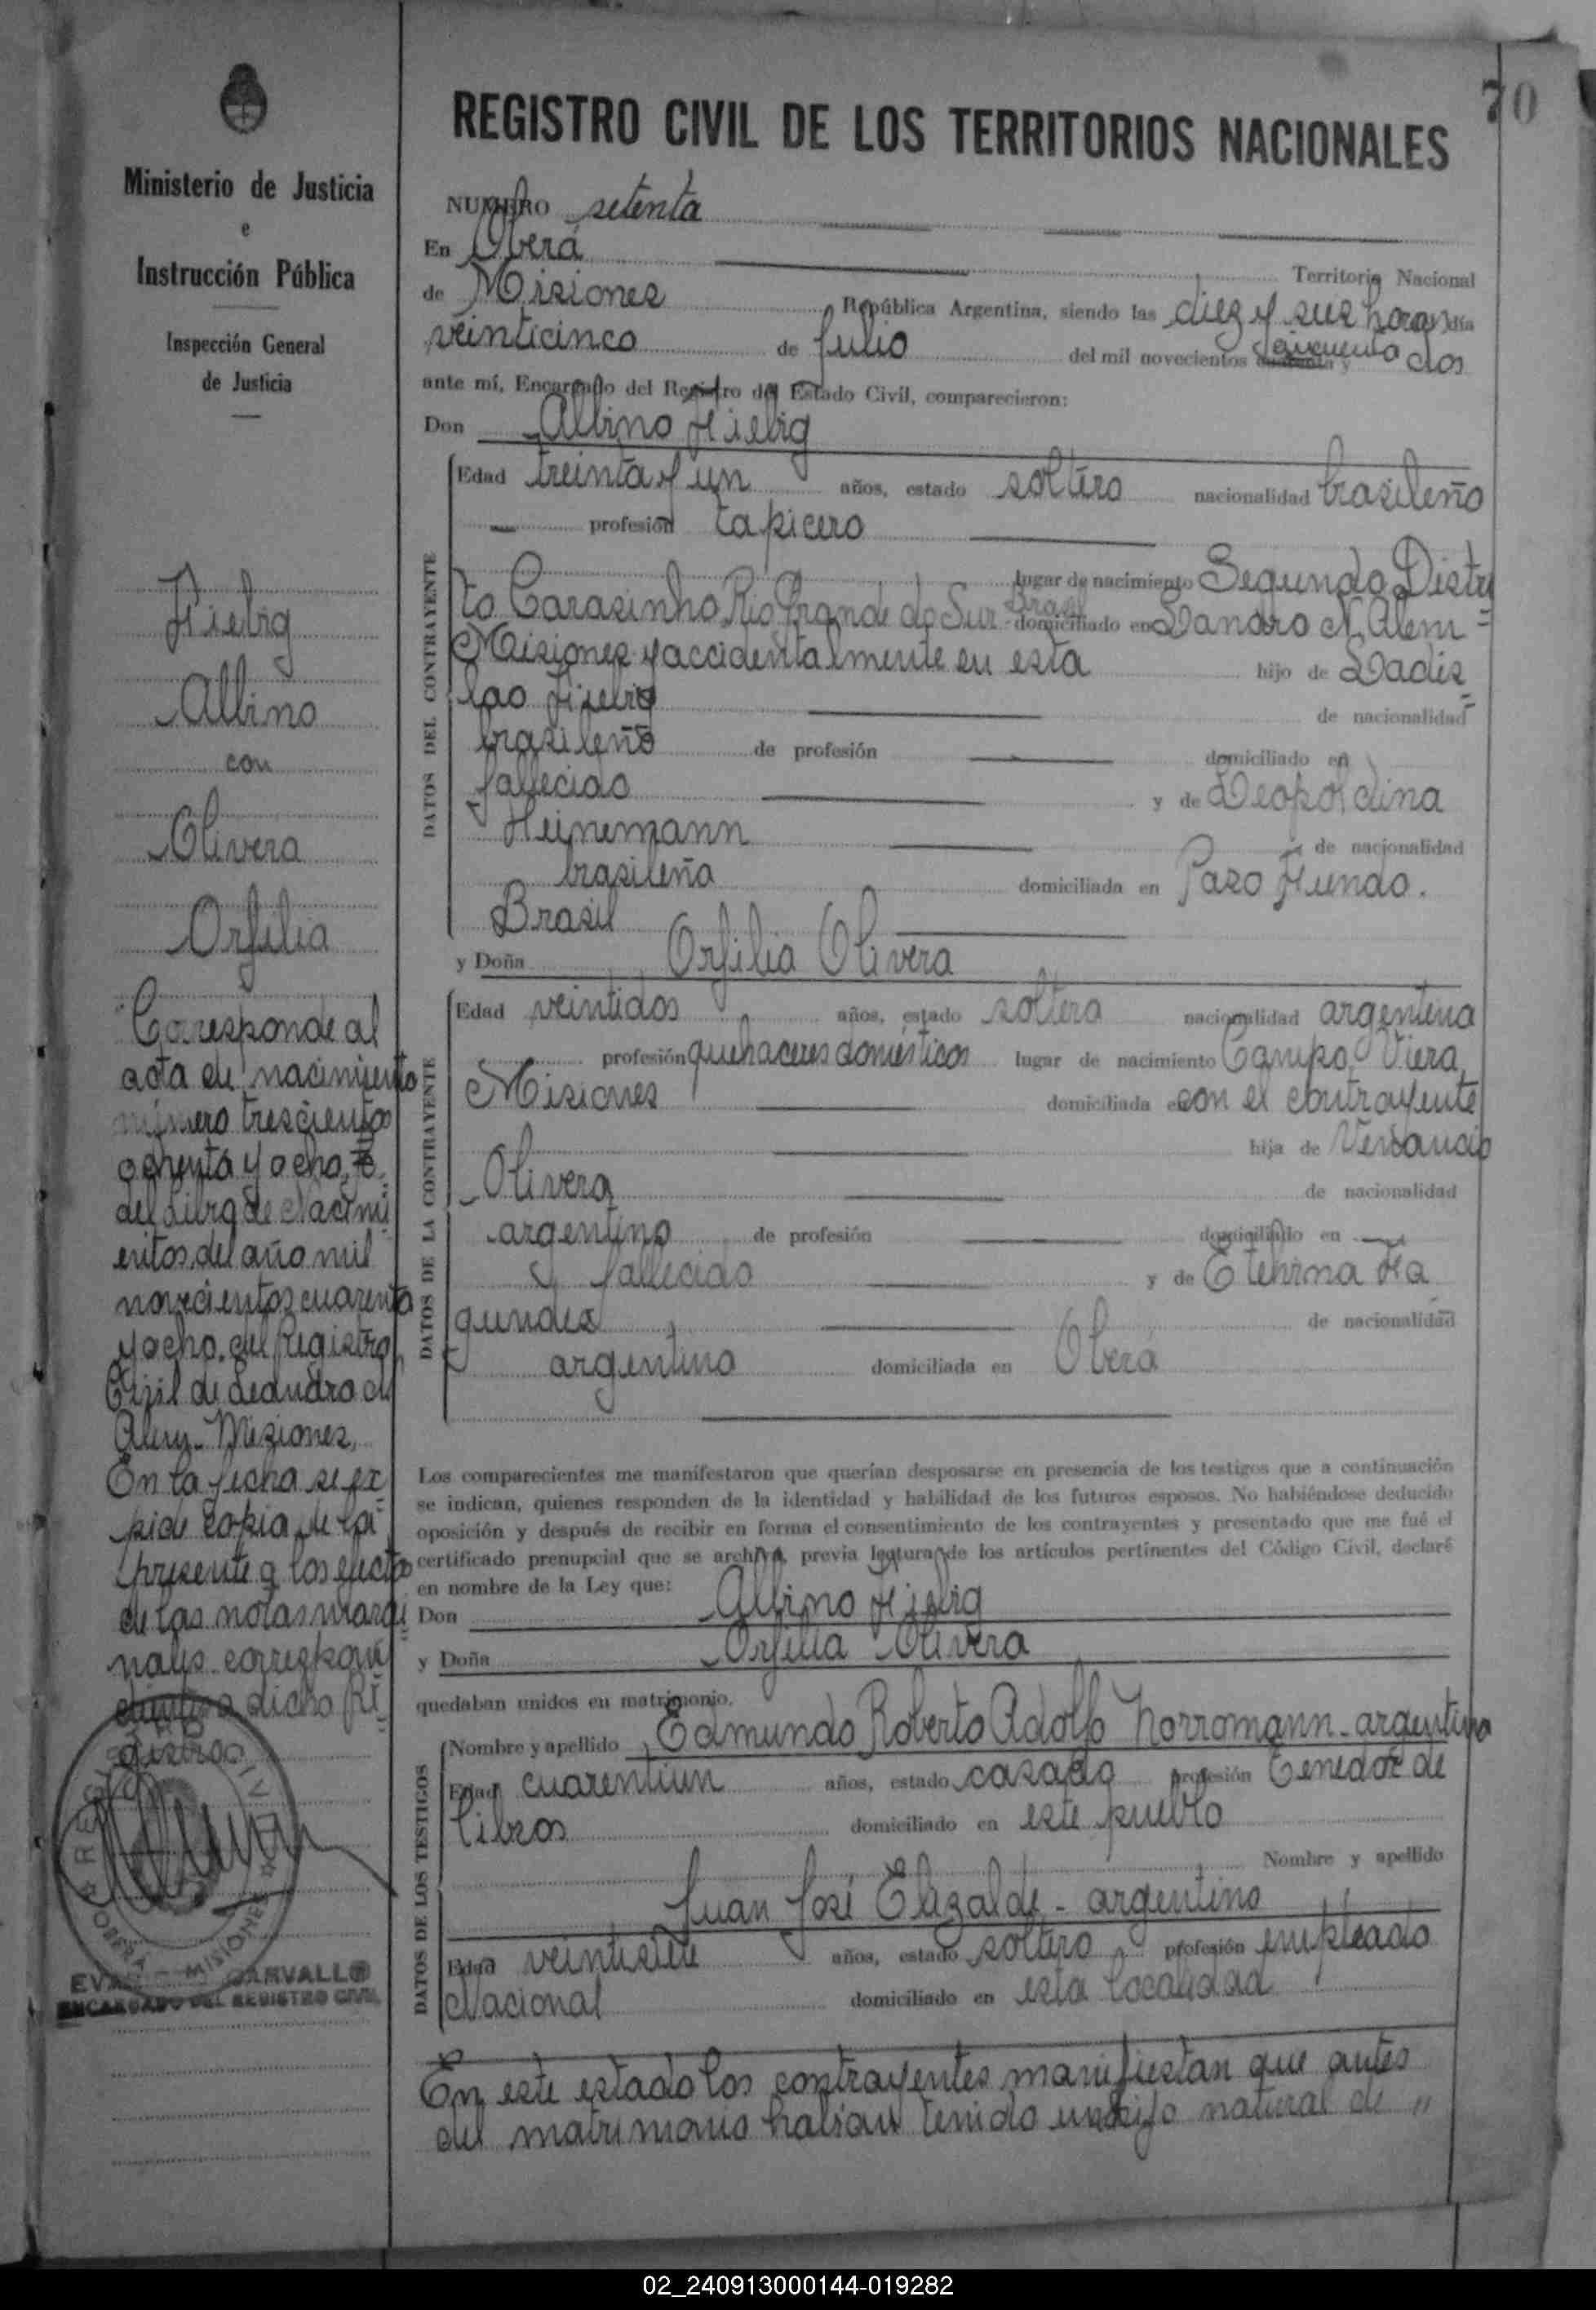 70
Ministerio de Justicia
e
Instrucción Pública
Inspección General
de Justicia
REGISTRO CIVIL DE LOS TERRITORIOS NACIONALES
NUMERO setenta
En Oberá Territorio Nacional
de Misiones República Argentina, siendo las diez y seis horas día
veinticinco de julio del mil novecientos cincuenta y dos
ante mí, Encargado del Registro del Estado Civil, comparecieron:
Don Albino Hielig
DATOS DEL CONTRAYENTE
Edad treinta y un años, estado soltero nacionalidad brasileño
profesión tapicero
lugar de nacimiento Segundo Distri-
to Carasinho Rio Grande do Sur Brasil domiciliado en Leandro N. Alem -
Misiones y accidentalmente en esta hijo de Ladis-
lao Hielig de nacionalidad
brasileño de profesión domiciliado en
fallecido y de Leopoldina
Heinemann de nacionalidad
brasileña domiciliada en Paso Fundo.
Brasil
y Doña Orfilia Olivera
DATOS DE LA CONTRAYENTE
Edad veintidos años, estado soltera nacionalidad argentina
profesión quehaceres domésticos lugar de nacimiento Campo Viera,
Misiones domiciliada en con el contrayente
hija de Venancio
Olivera de nacionalidad
argentino de profesión domiciliado en
fallecido y de Etelvina Fa
gundez de nacionalidad
argentina domiciliada en Oberá
Los comparecientes me manifestaron que querían desposarse en presencia de los testigos que a continuación
se indican, quienes responden de la identidad y habilidad de los futuros esposos. No habiéndose deducido
oposición y después de recibir en forma el consentimiento de los contrayentes y presentado que me fué el
certificado prenupcial que se archiva, previa lectura de los artículos pertinentes del Código Civil, declaré
en nombre de la Ley que:
Don Albino Hielig
y Doña Orfilia Olivera
quedaban unidos en matrimonio.
DATOS DE LOS TESTIGOS
Nombre y apellido Edmundo Roberto Adolfo Norromann - argentino
Edad cuarentiun años, estado casado profesión Tenedor de
libros domiciliado en este pueblo
Nombre y apellido
Juan José Elizalde - argentino
Edad veintisiete años, estado soltero profesión empleado
Nacional domiciliado en esta localidad
En este estado los contrayentes manifiestan que antes
del matrimonio habían tenido un hijo natural de "
Hielig
Albino
con
Olivera
Orfilia
Corresponde al
acta de nacimiento
número trescientos
ochenta y ocho,
del Libro de Nacimi
entos, del año mil
novecientos cuarenta
y ocho, del Registro
Civil de Leandro N.
Alem - Misiones,
En la fecha se ex
pide copia de la
presente a los efectos
de las notas margi
nales correspon
diente a dicho Re
gistro
REGISTRO CIVIL
OBERÁ - MISIONES
CARVALLO
ENCARGADO DEL REGISTRO CIVIL
02_240913000144-019282